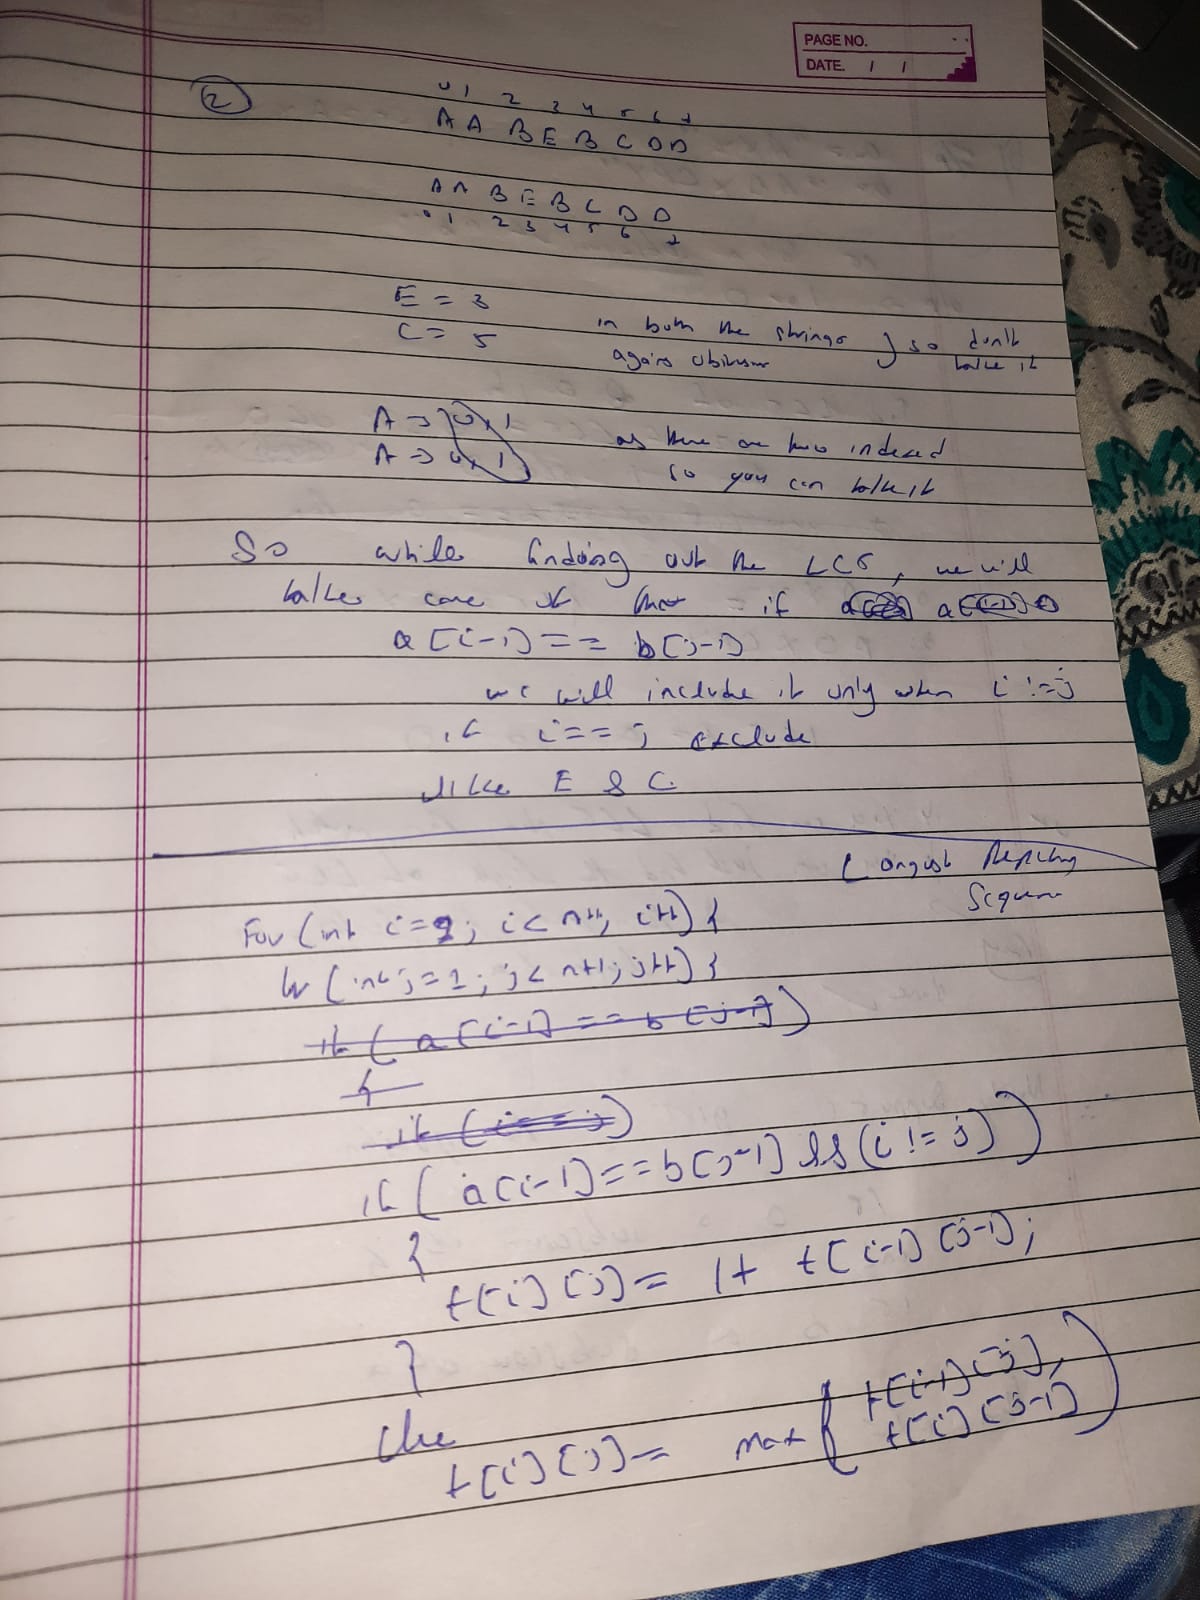 PAGE NO.
DATE. / /
2
0 1 2 3 4 5 6 7
A A B E B C D D
A A B E B C D D
0 1 2 3 4 5 6 7
E = 3
C = 5
in both the strings } so don't take it
again
A → 0, 1
A → 0, 1
as there are two indexed
so you can take it
So while finding out the LCS, we will
take care of that - if a[i-1]
a[i-1] == b[j-1]
we will include it only when i != j
if i == j exclude
like E & C
Longest Repeating
Sequence
For (int i=1; i < n+1; i++) {
for (int j=1; j < n+1; j++) {
if (a[i-1] == b[j-1])
{
if (i == j)
if (a[i-1] == b[j-1] && (i != j))
{
t[i][j] = 1 + t[i-1][j-1];
}
else
t[i][j] = max { t[i-1][j],
t[i][j-1] )